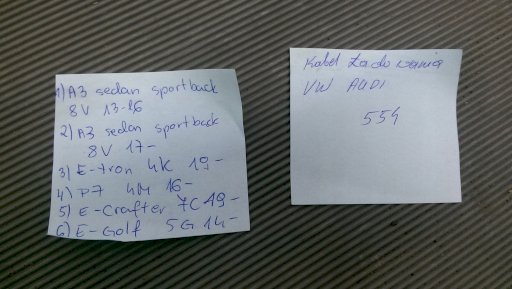 1) A3 sedan sportback
8V 13-16
2) A3 sedan sportback
8V 17-
3) E-tron 4K 19-
4) P7 4M 16-
5) E-Crafter 7C 19-
6) E-Golf 5G 14-
Kabel Ładowania
VW AUDI
554